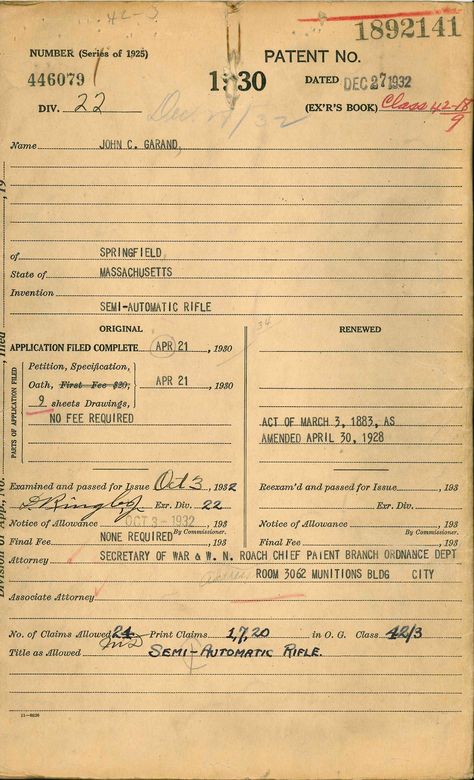 42-3
1892141
NUMBER (Series of 1925)
PATENT No.
446079
1930
DATED DEC 27 1932
DIV. 22
Dec 27/32
(EX'R'S BOOK) Class 42-18
9
Name JOHN C. GARAND,
of SPRINGFIELD,
State of MASSACHUSETTS
Invention
SEMI-AUTOMATIC RIFLE
ORIGINAL
RENEWED
34
APPLICATION FILED COMPLETE APR 21, 1930
, 193
PARTS OF APPLICATION FILED
Petition, Specification,
Oath, First Fee $20, APR 21, 1930
9 sheets Drawings,
NO FEE REQUIRED
ACT OF MARCH 3, 1883, AS
AMENDED APRIL 30, 1928
Examined and passed for Issue Oct 3, 1932
Reexam'd and passed for Issue, 193
Exr. Div. 22
Exr. Div.
Notice of Allowance OCT 3 - 1932, 193
Notice of Allowance, 193
By Commissioner.
By Commissioner.
Final Fee NONE REQUIRED, 193
Final Fee, 193
Attorney SECRETARY OF WAR & W. N. ROACH CHIEF PATENT BRANCH ORDNANCE DEPT
ROOM 3062 MUNITIONS BLDG CITY
Associate Attorney
No. of Claims Allowed 24 Print Claims 1,7,20 in O. G. Class 42/3
Title as Allowed SEMI-AUTOMATIC RIFLE.